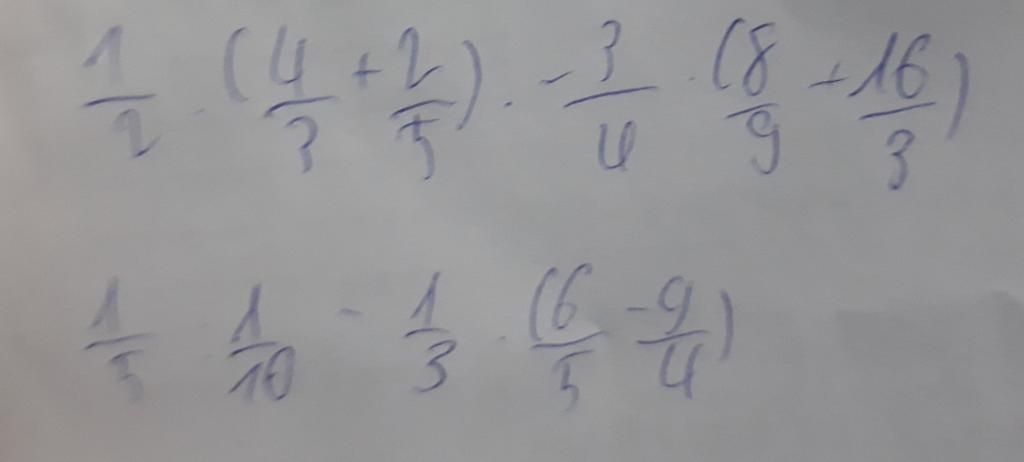 1/2 · (4/3 + 2/5) · - 3/4 · (8/9 + 16/3)
1/5 · 1/10 - 1/3 · (6/5 - 9/4)